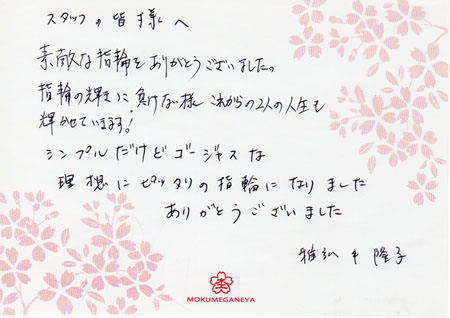 スタッフの皆様へ
素敵な指輪をありがとうございました。
指輪の輝きに負けない様これからの2人の人生も
輝かせていきます!
シンプルだけどゴージャスな
理想にピッタリの指輪になりました
ありがとうございました
雅弘 隆子
MOKUMEGANEYA